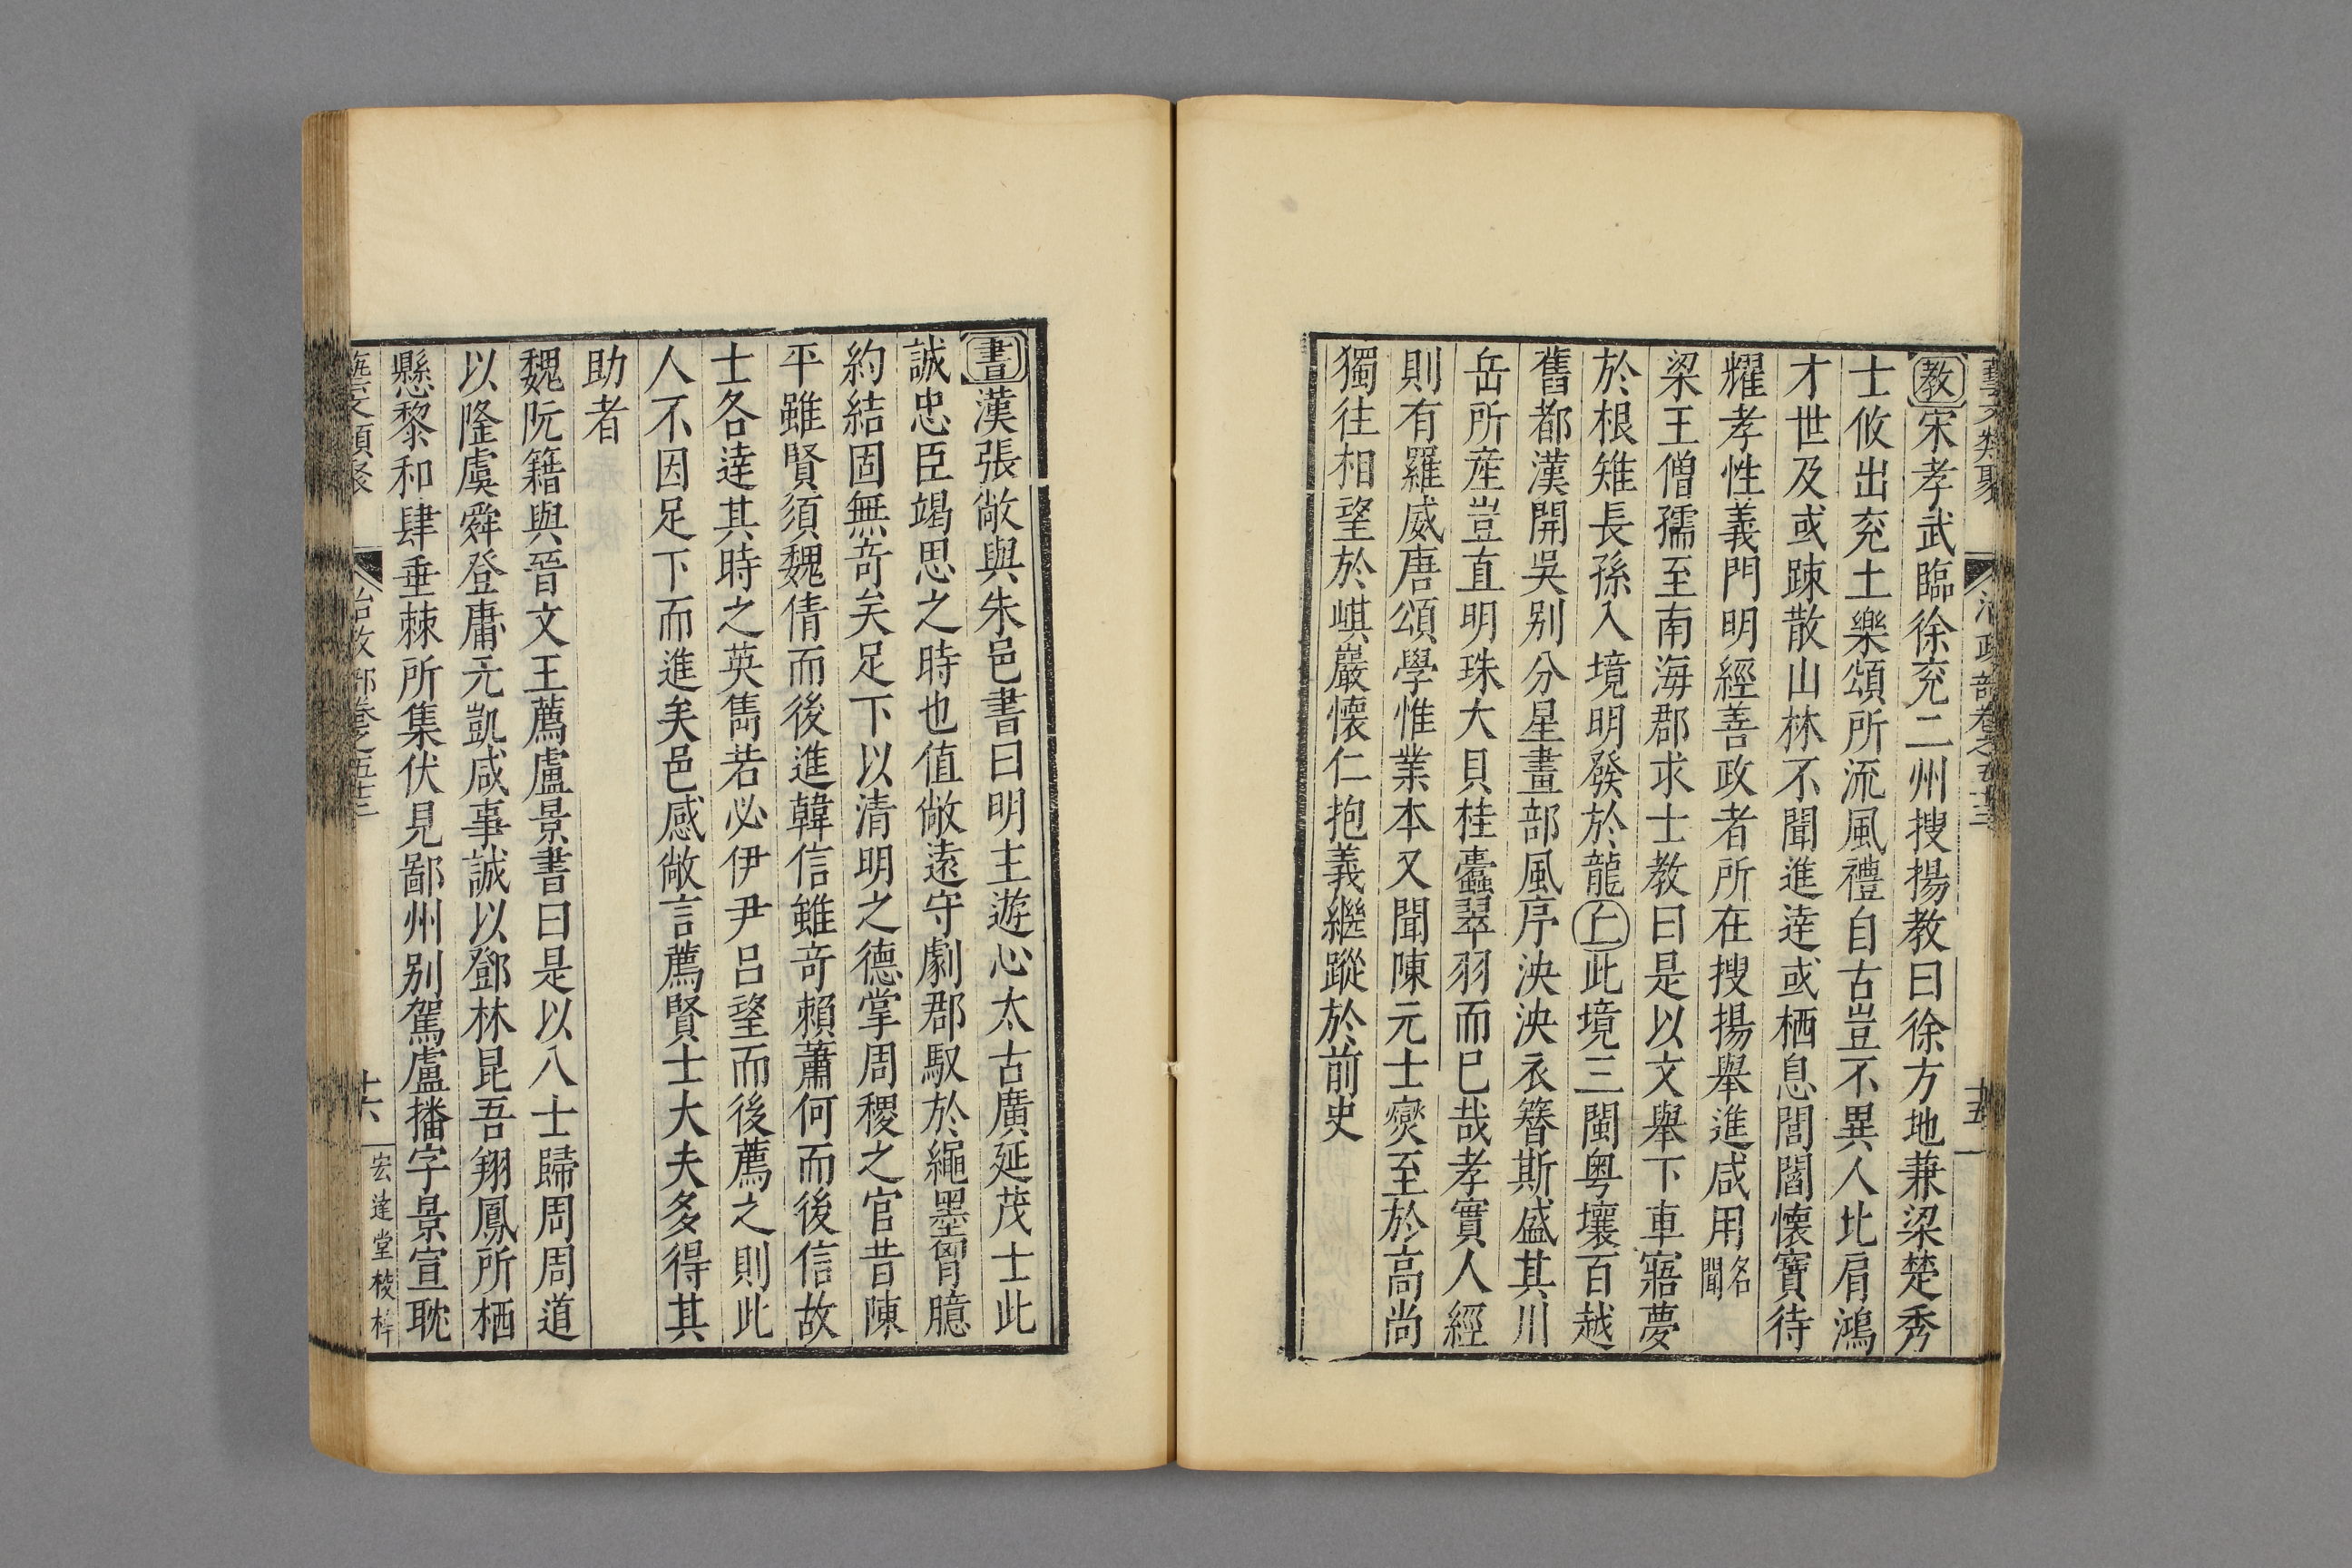 藝文類聚 治政部卷之五十三 十五
教宋孝武臨徐兖二州搜揚教曰徐方地兼梁楚秀
士攸出兖土樂頌所流風禮自古豈不異人比肩鴻
才世及或踈散山林不聞進達或栖息閭閻懷寶待
耀孝性義門明經善政者所在搜揚舉進咸用名聞
梁王僧孺至南海郡求士教曰是以文舉下車寤夢
於根雉長孫入境明發於龍丘此境三閩粤壤百越
舊都漢開吳別分星畫部風序泱泱衣簪斯盛其川
岳所産豈直明珠大貝桂蠹翠羽而巳哉孝實人經
則有羅威唐頌學惟業本又聞陳元士爕至於高尚
獨往相望於嶼巖懷仁抱義繼蹤於前史
書漢張敞與朱邑書曰明主遊心太古廣延茂士此
誠忠臣竭思之時也值敞遠守劇郡馭於繩墨胷臆
約結固無奇矣足下以清明之德掌周稷之官昔陳
平雖賢須魏倩而後進韓信雖奇賴蕭何而後信故
士各達其時之英雋若必伊尹吕望而後薦之則此
人不因足下而進矣邑感敞言薦賢士大夫多得其
助者
魏阮籍與晉文王薦盧景書曰是以八士歸周周道
以隆虞舜登庸元凱咸事誠以鄧林昆吾翔鳳所栖
懸黎和肆垂棘所集伏見鄙州别駕盧播字景宣耽
藝文類聚 治政部卷之五十三 十六 宏達堂校梓